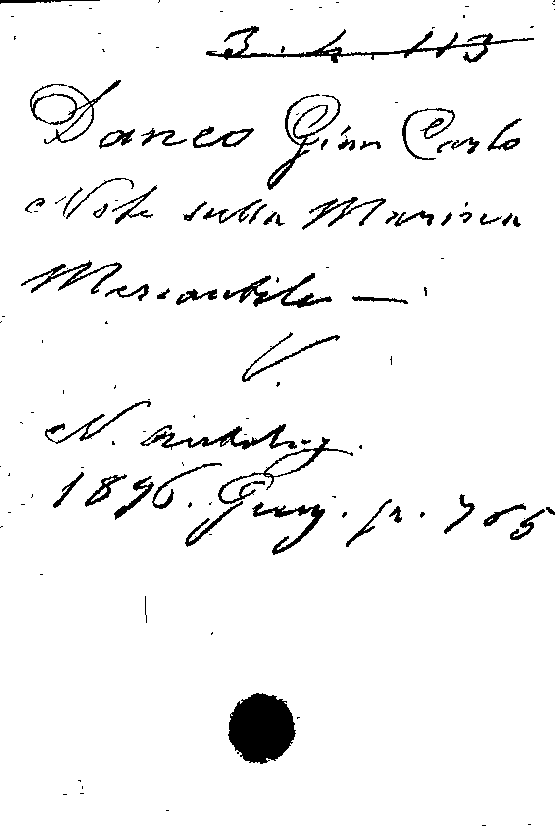 3. 4. 113
Daneo Gian Carlo
Note sulla Marina
Mercantile —
V.
N. Antolog.
1896. Giug. p. 765